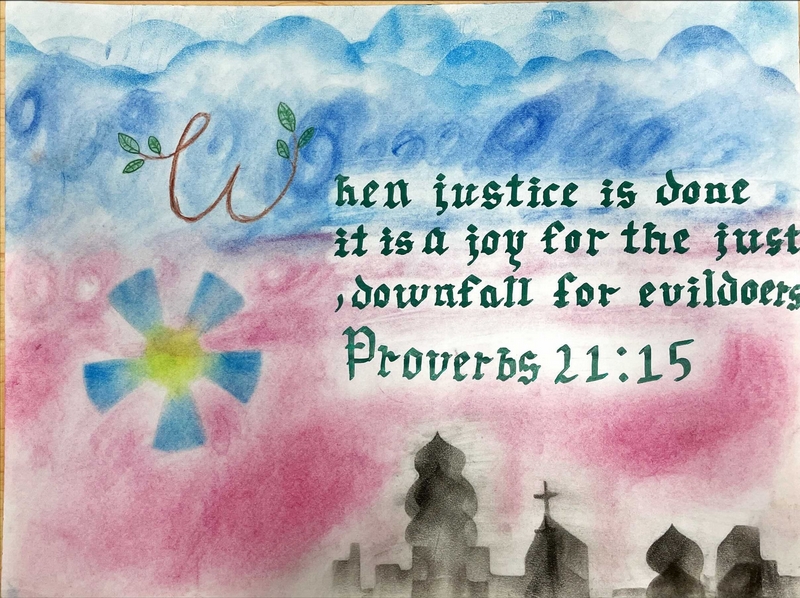 When justice is done
it is a joy for the just
, downfall for evildoers
Proverbs 21:15